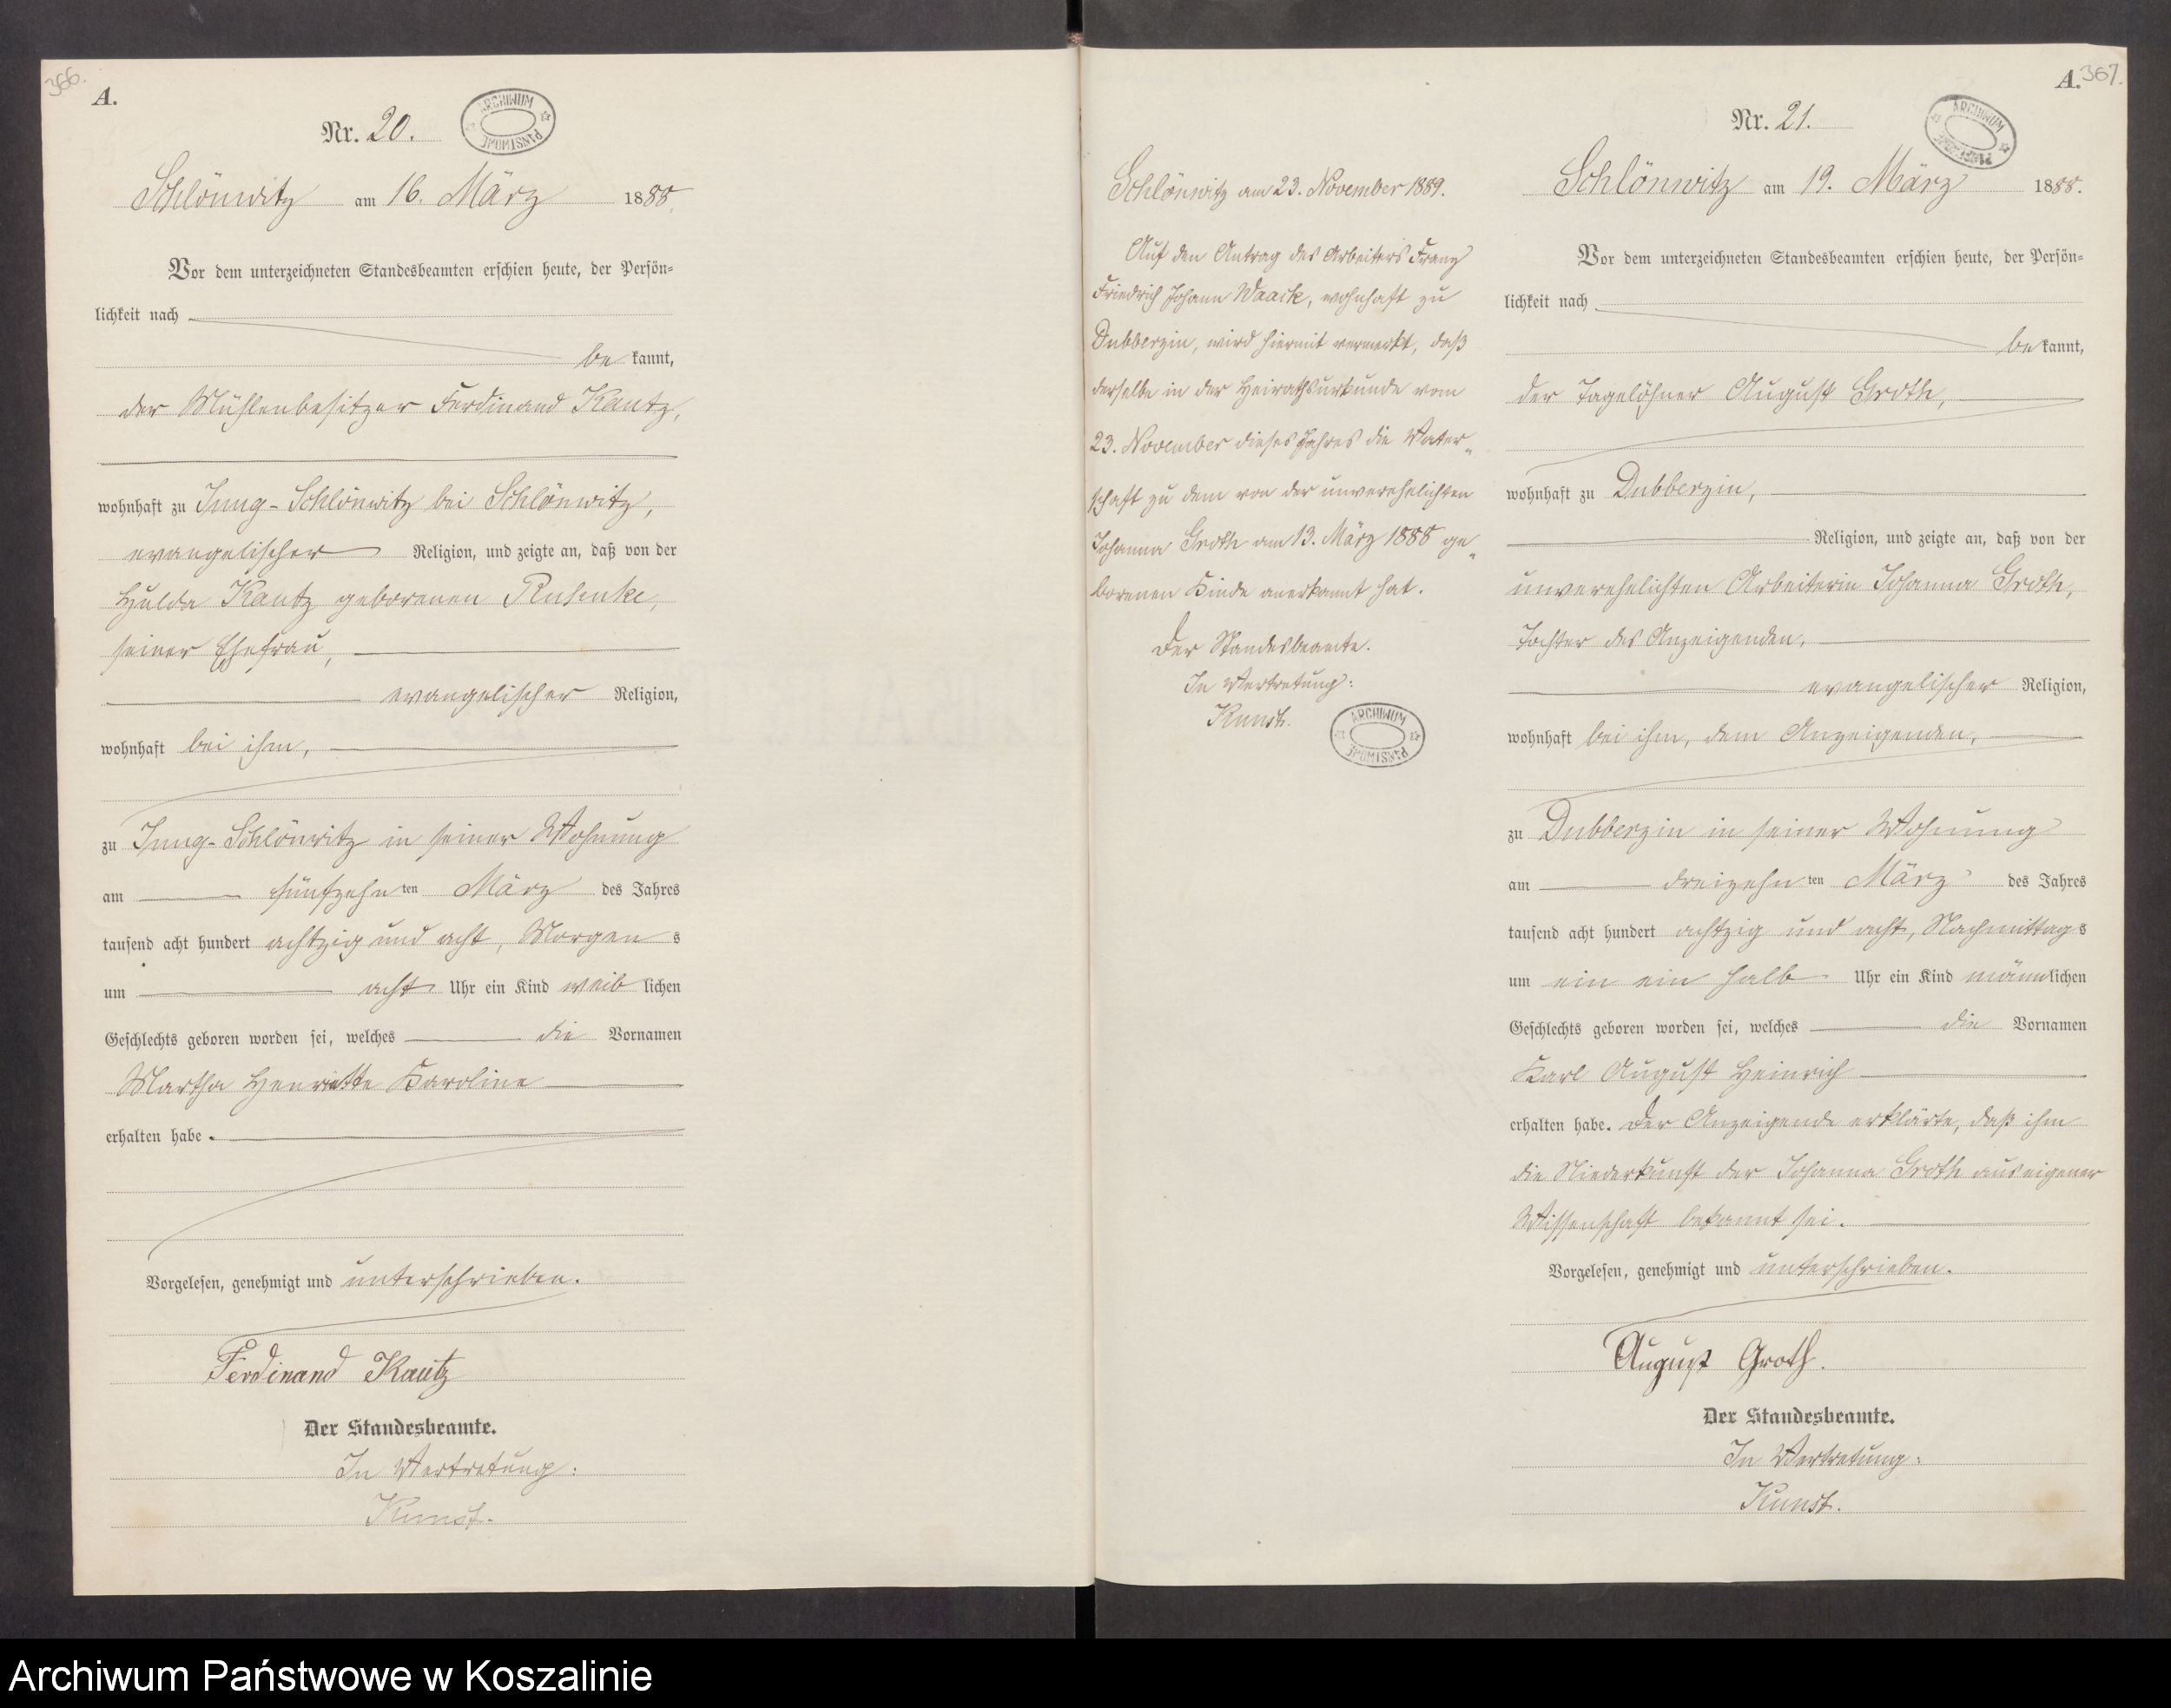 366.
A.
Nr. 20.
ARCHIWUM PAŃSTWOWE
Schlönwitz am 16. März 1888
Vor dem unterzeichneten Standesbeamten erschien heute, der Persön=
lichkeit nach
be kannt,
der Mühlenbesitzer Ferdinand Kautz,
wohnhaft zu Jung-Schlönwitz bei Schlönwitz,
evangelischer Religion, und zeigte an, daß von der
Hulda Kautz geborenen
seiner Ehefrau,
evangelischer Religion,
wohnhaft bei ihm,
zu Jung-Schlönwitz in seiner Wohnung
am fünfzehn ten März des Jahres
tausend acht hundert achtzig und acht, Morgens
um acht Uhr ein Kind weiblichen
Geschlechts geboren worden sei, welches die Vornamen
Martha Henriette Karoline
erhalten habe.
Vorgelesen, genehmigt und unterschrieben.
Ferdinand Kautz
Der Standesbeamte.
In Vertretung:
Kunst.
Schlönwitz am 23. November 1889.
Auf den Antrag des Arbeiters Franz
Friedrich Johann Waack, wohnhaft zu
Dubberzin, wird hiermit vermerkt, daß
derselbe in der Heirathsurkunde vom
23. November dieses Jahres die Vater„
schaft zu dem von der unverehelichten
Johanna Groth am 13. März 1888 ge„
borenen Kinde anerkannt hat.
Der Standesbeamte.
In Vertretung:
Kunst.
ARCHIWUM PAŃSTWOWE
A. 367.
Nr. 21.
ARCHIWUM PAŃSTWOWE
Schlönwitz am 19. März 1888.
Vor dem unterzeichneten Standesbeamten erschien heute, der Persön=
lichkeit nach
be kannt,
der Tagelöhner August Groth,
wohnhaft zu Dubberzin,
Religion, und zeigte an, daß von der
unverehelichten Arbeiterin Johanna Groth,
Tochter des Anzeigenden,
evangelischer Religion,
wohnhaft bei ihm, dem Anzeigenden,
zu Dubberzin in seiner Wohnung
am dreizehn ten März des Jahres
tausend acht hundert achtzig und acht, Nachmittags
um ein ein halb Uhr ein Kind männlichen
Geschlechts geboren worden sei, welches die Vornamen
Karl August Heinrich
erhalten habe. Der Anzeigende erklärte, daß ihm
die Niederkunft der Johanna Groth aus eigener
Wissenschaft bekannt sei.
Vorgelesen, genehmigt und unterschrieben.
August Groth.
Der Standesbeamte.
In Vertretung:
Kunst.
Archiwum Państwowe w Koszalinie